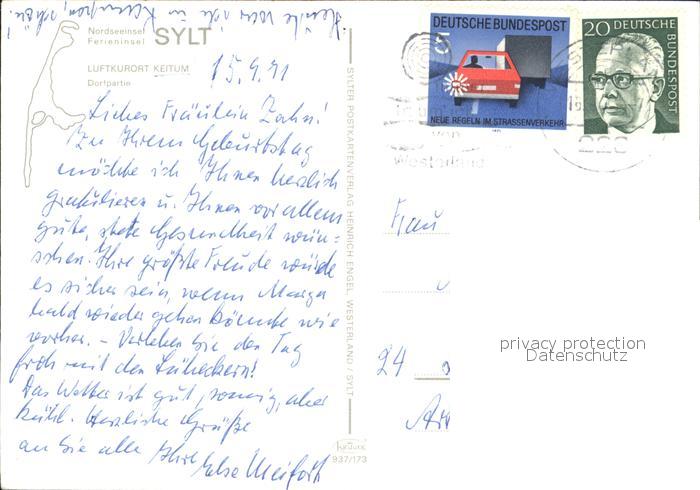 Heute war ich in Kampen, schön!
Nordseeinsel
Ferieninsel SYLT
LUFTKURORT KEITUM
Dorfpartie
15.9.71
Liebes Fräulein Zahn!
Zu Ihrem Geburtstag
möchte ich Ihnen herzlich
gratulieren u. Ihnen vor allem
gute, stete Gesundheit wün-
schen. Ihre größte Freude würde
es sicher sein, wenn Marga
bald wieder gehen könnte wie
vorher. – Verleben Sie den Tag
froh mit den Lübeckern!
Das Wetter ist gut, sonnig, aber
kühl. Herzliche Grüße
an Sie alle Ihre
SYLTER POSTKARTENVERLAG HEINRICH ENGEL, WESTERLAND / SYLT
937/173
DEUTSCHE BUNDESPOST
5
NEUE REGELN IM STRASSENVERKEHR
20 DEUTSCHE
BUNDESPOST
von
Westerland
Frau
24
privacy protection
Datenschutz